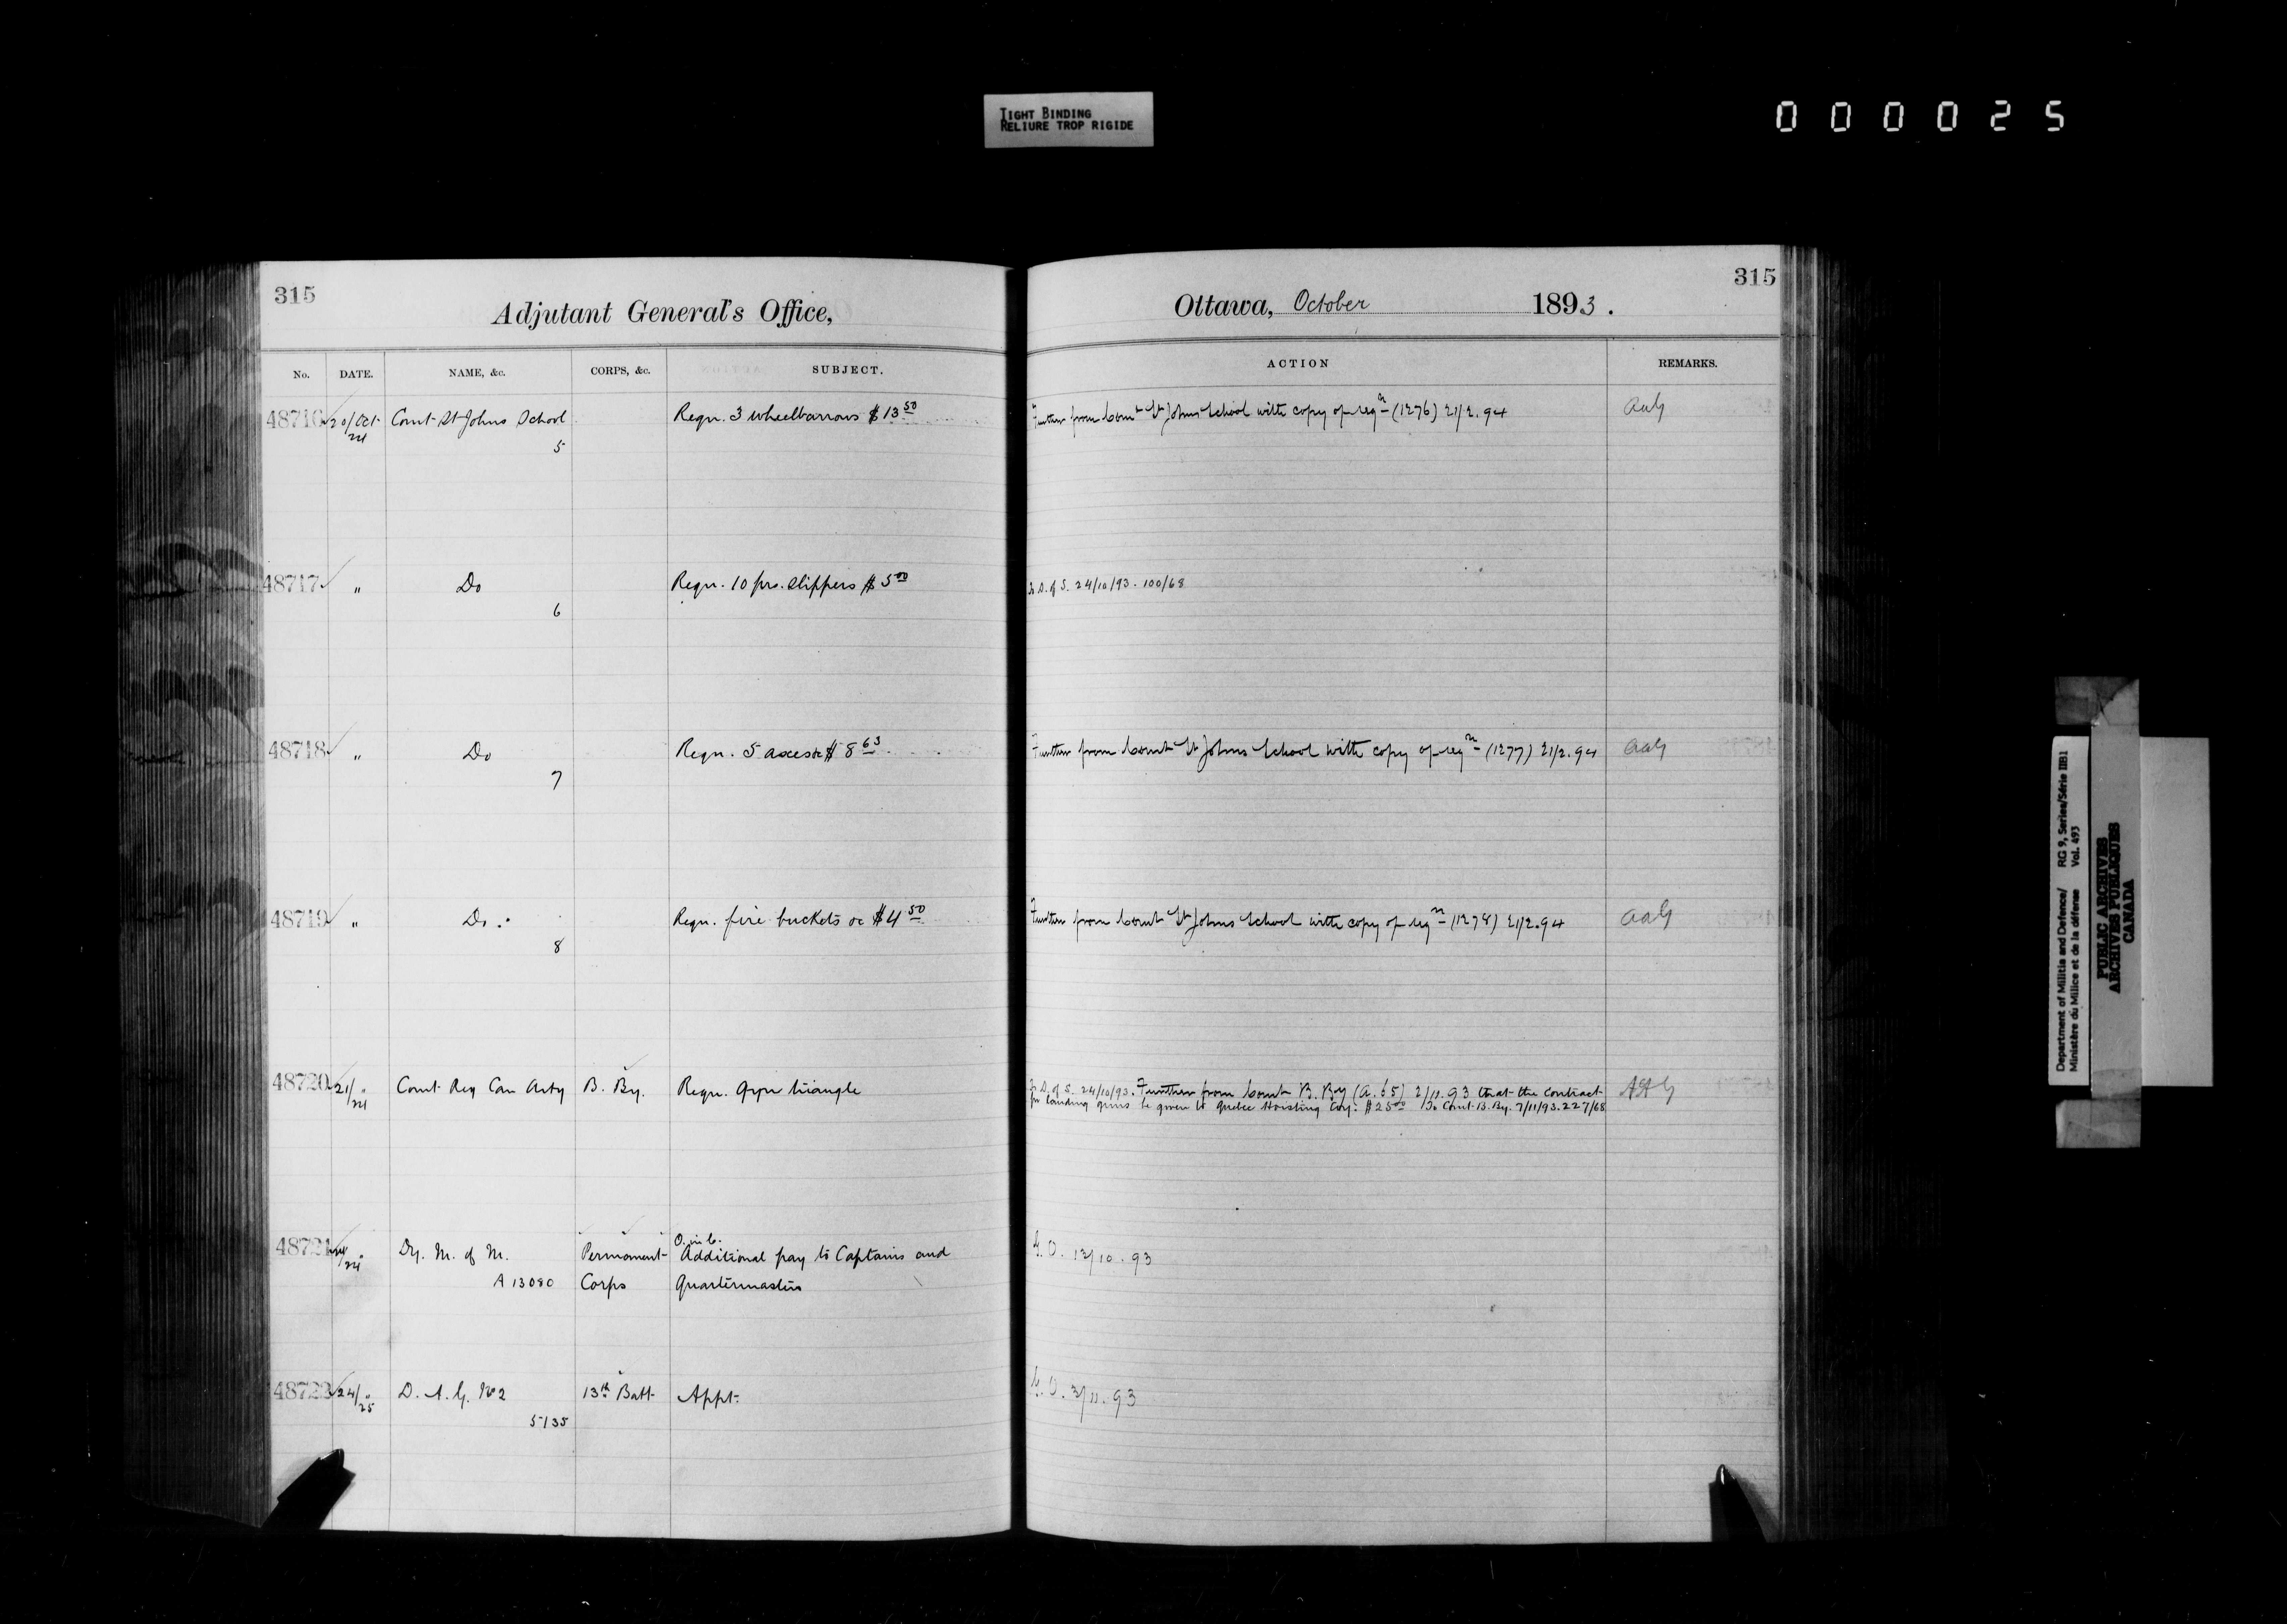 TIGHT BINDING
RELIURE TROP RIGIDE
000025
315
Adjutant General's Office,
No. DATE. NAME, &c. CORPS, &c. SUBJECT.
48716 20/Oct Comt St Johns School Requ. 3 wheelbarrows $13 50
24
5
48717 " Do Requ. 10 prs. slippers $5 00
6
48718 " Do Requ. 5 axes &c $8 63
7
48719 " Do. Requ. fire buckets &c $4 50
8
48720 21/ " Comt Reg Can Arty B. By. Requ. Gyn triangle
24
O. in C.
48721 " Dy. M. of M. Permanent Additional pay to Captains and
24
A 13080 Corps Quartermasters
48722 24/ " D. A. G. No 2 13th Batt Appt.
25
5135
315
Ottawa, October 1893.
ACTION REMARKS.
Further from Comt St Johns School with copy of reqn (1276) 21/2.94 AAG
To D. of S. 24/10/93. 100/68
Further from Comt St Johns School with copy of reqn (1277) 21/2.94 AAG
Further from Comt St Johns School with copy of reqn (1278) 21/2.94 AAG
To D. of S. 24/10/93. Further from Comt B. By (A. 65) 2/11.93 that the contract AAG
for landing guns be given to Quebec Hoisting Coy. $25 00 To Comt. B. By. 7/11/93. 227/68
G. O. 12/10.93
G. O. 3/11.93
Department of Militia and Defence/ RG 9, Series/Série IIB1
Ministère du Milice et de la défense Vol. 493
PUBLIC ARCHIVES
ARCHIVES PUBLIQUES
CANADA